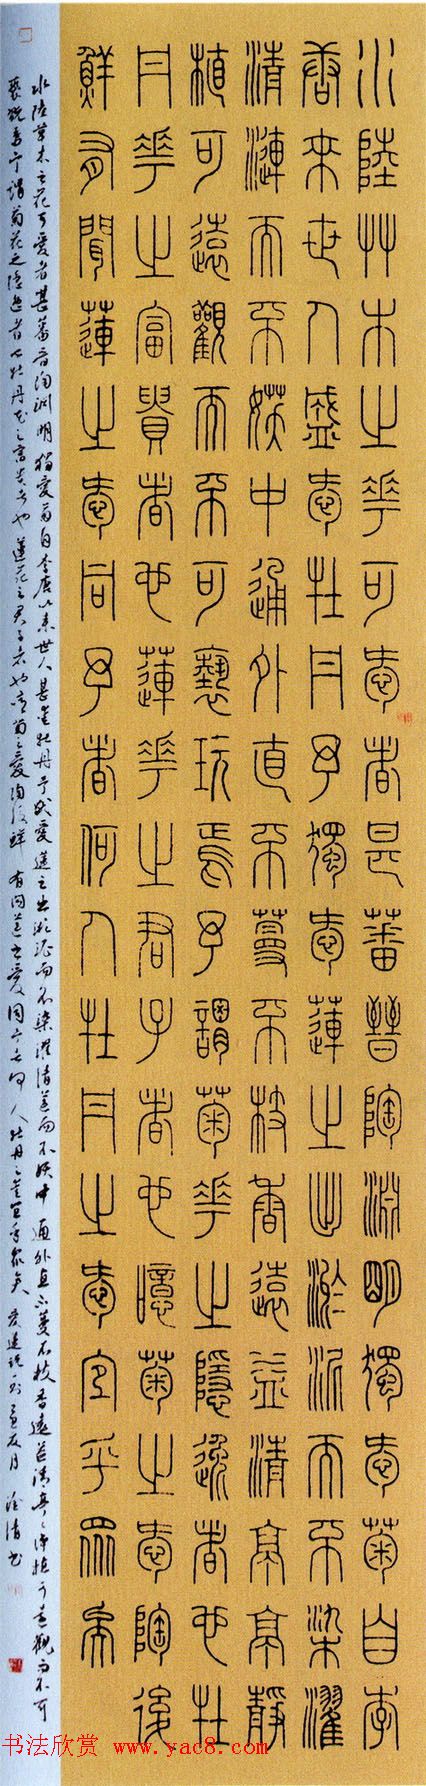 水陸艸木之華可愛者甚蕃晉陶淵明獨愛菊自李
唐來世人盛愛牡丹予獨愛蓮之出淤泥而不染濯
清漣而不妖中通外直不蔓不枝香遠益清亭亭靜
植可遠觀而不可褻玩焉予謂菊華之隱逸者也牡
丹華之富貴者也蓮華之君子者也噫菊之愛陶後
鮮有聞蓮之愛同予者何人牡丹之愛宜乎眾矣
水陸草木之花可愛者甚蕃晉陶淵明獨愛菊自李唐以來世人甚愛牡丹予獨愛蓮之出淤泥而不染濯清蓮而不妖中通外直不蔓不枝香遠益清亭亭淨植可遠觀而不可
褻玩焉予謂菊花之隱逸者也牡丹花之富貴者也蓮花之君子者也噫菊之愛陶後鮮有聞蓮之愛同予者何人牡丹之愛宜乎眾矣愛蓮說一則月書
书法欣赏 www.yac8.com